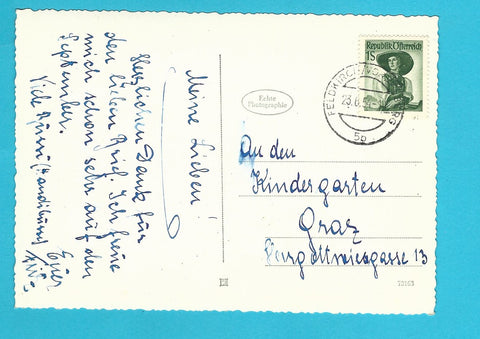 Meine Lieben!
Herzlichen Dank für
den lieben Brief. Ich freue
mich schon sehr auf den
September.
Viele
Euer
Echte
Photographie
Republik Österreich
1S
FELDKIRCH
23.6.
5b
An den
Kindergarten
Graz
13
73163